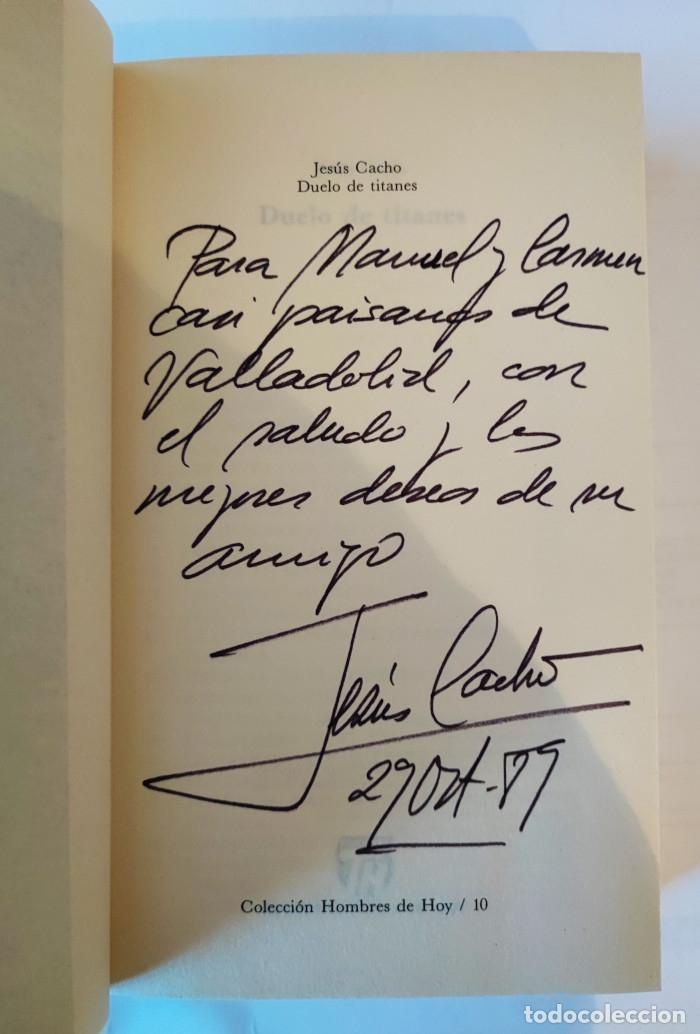 Jesús Cacho
Duelo de titanes
Duelo de titanes
Para Manuel y Carmen
casi paisanos de
Valladolid, con
el saludo y los
mejores deseos de su
amigo
Jesús Cacho
29 Oct-89
Colección Hombres de Hoy / 10
todocoleccion